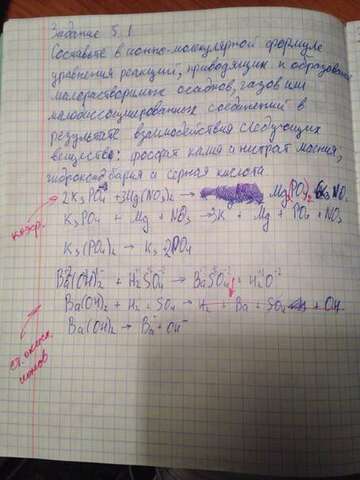 Задание 5.1
Составьте в ионно-молекулярной формуле
уравнения реакций, приводящих к образован
малорастворимых осадков, газов или
малодиссоциированных соединений в
результате взаимодействия следующих
веществ: фосфат калия и нитрат магния;
гидроксид бария и серная кислота.
2K₃PO₄ + 3Mg(NO₃)₂ → Mg₃(PO₄)₂ + 6KNO₃
коэф.
K₃PO₄ + Mg + NO₃ → 3K + Mg + PO₄ + NO₃
K₃(PO₄)₂ → K₃ 2PO₄
Ba(OH)₂ + H₂SO₄ → BaSO₄ + H₂O
Ba(OH)₂ + H₂ + SO₄ → H₂ + Ba + SO₄ + OH
ионов
Ba(OH)₂ → Ba + OH⁻